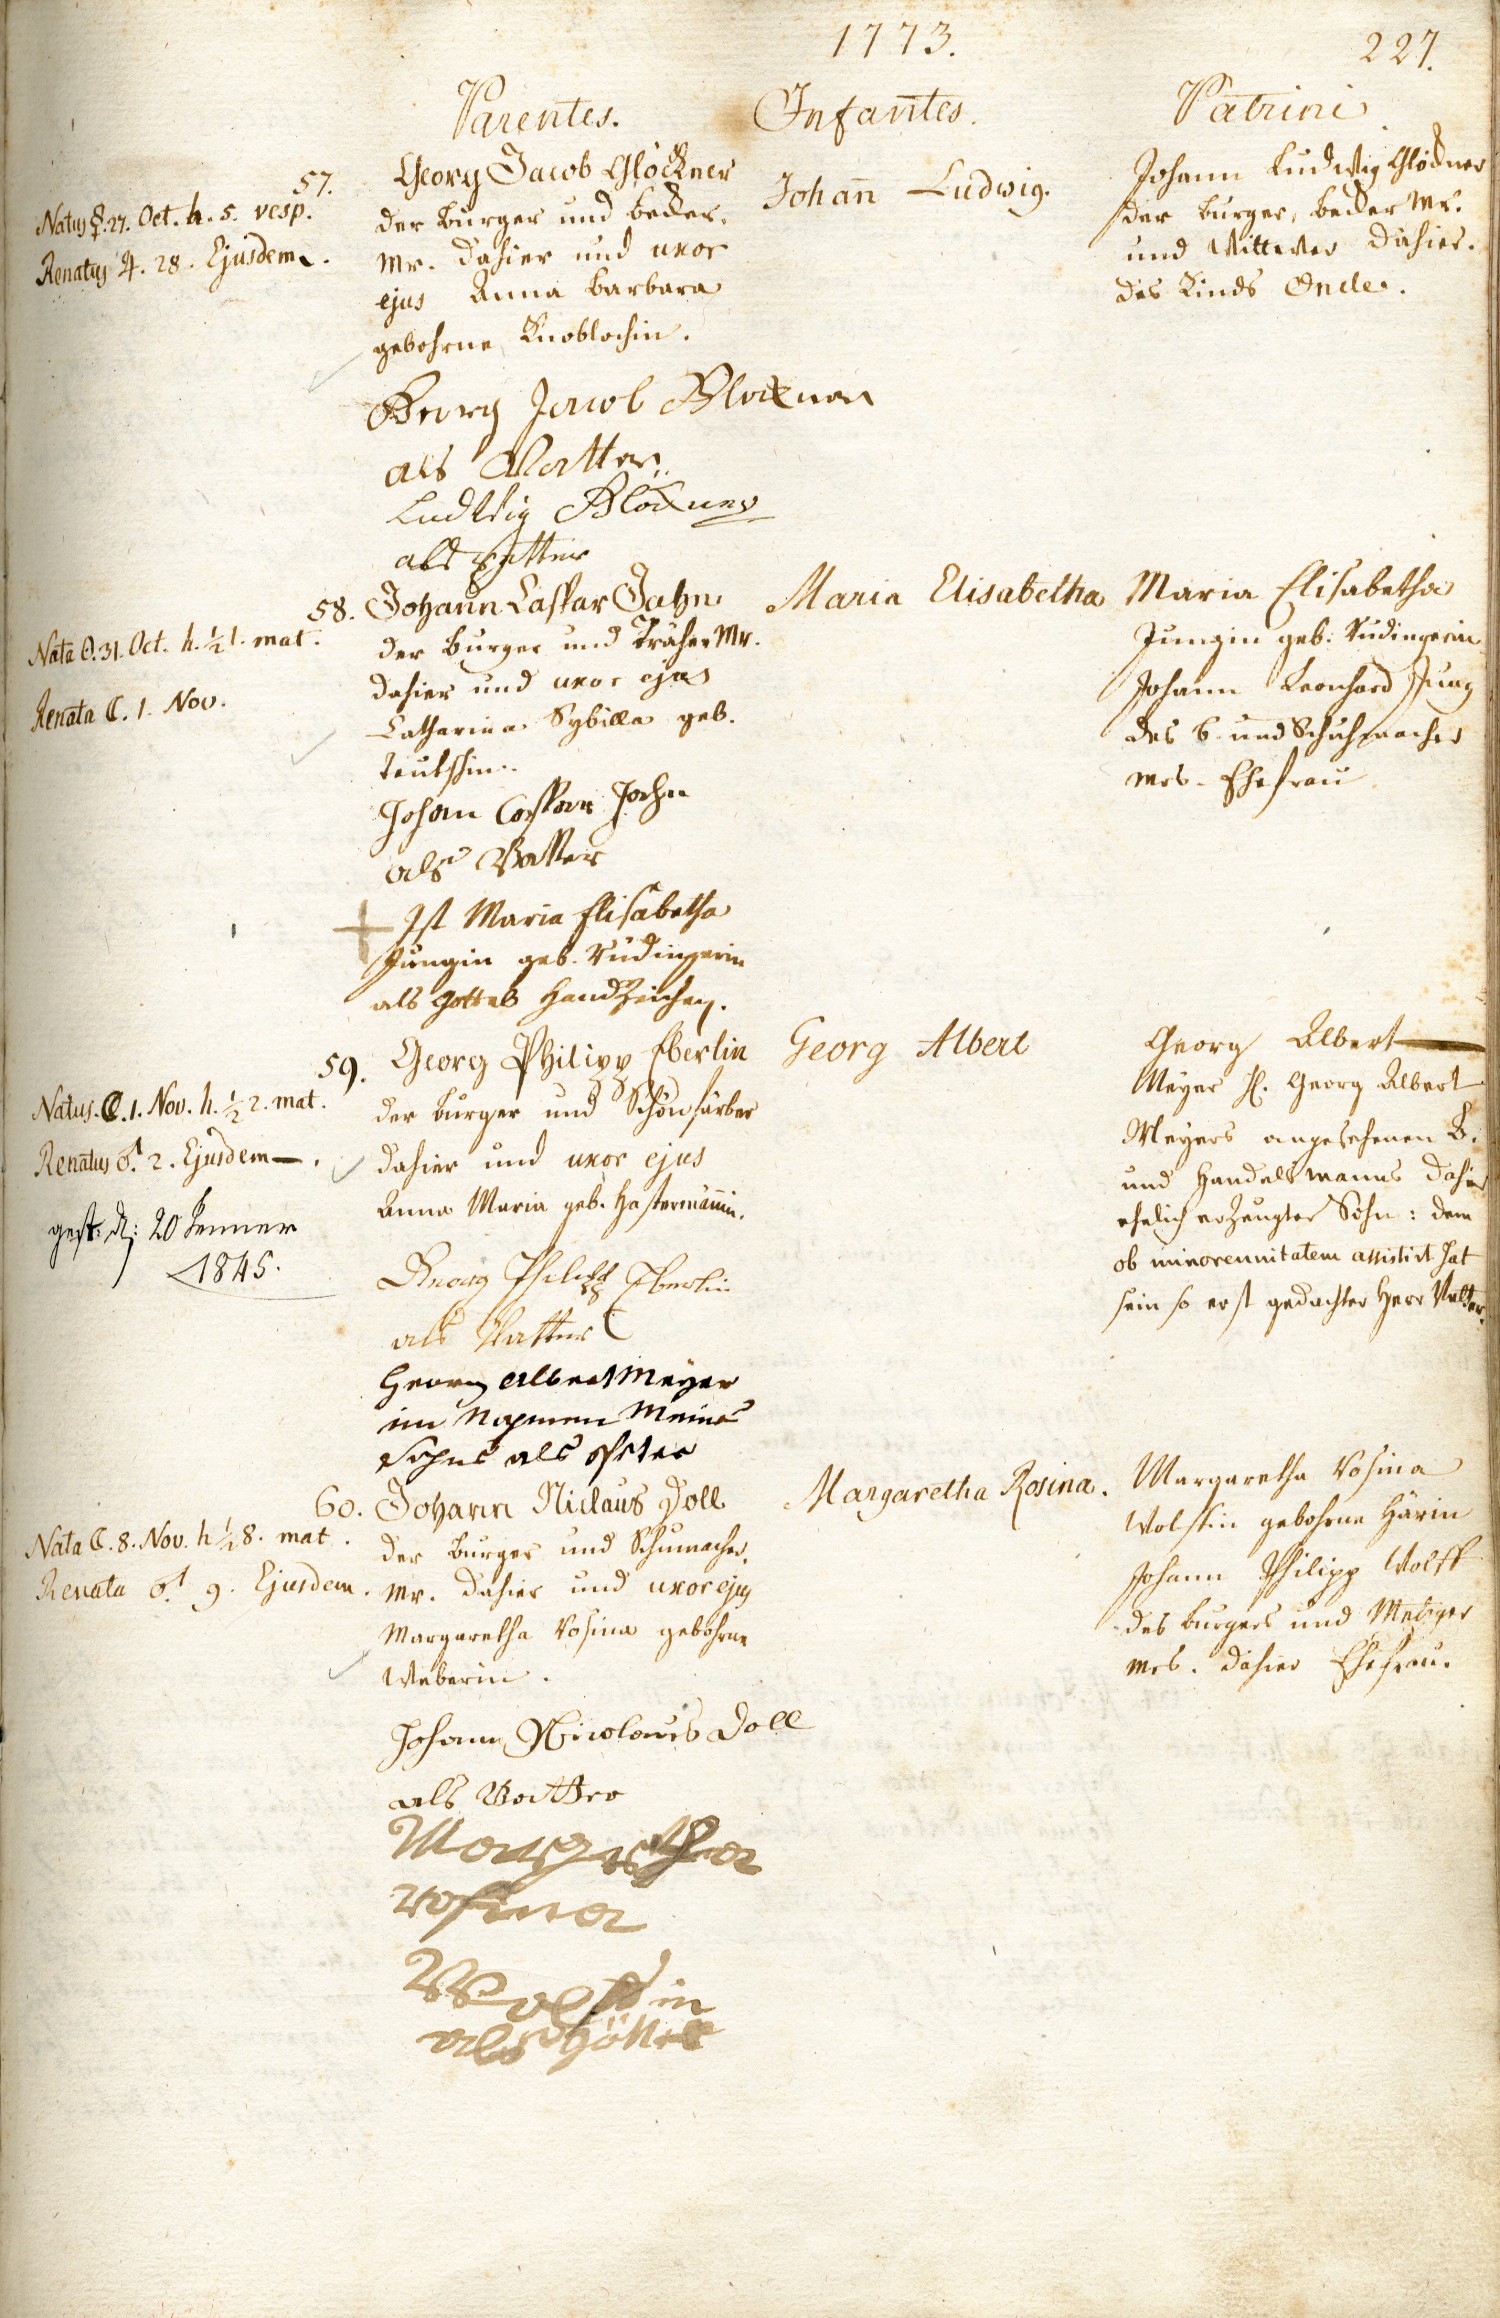 1773.
227.
Parentes.
Infantes.
Patrini
57.
Natus ☿. 27. Oct. h. 5. vesp.
Renatus ♃. 28. Ejusdem.
Georg Jacob Glöckner
der Burger und Becker
Mr. dahier und uxor
ejus Anna Barbara
gebohrne Knoblochin.
Johan̄ Ludwig.
Johann Ludwig Glöckner
der Burger, Becker Mr.
und Wittwer dahier.
des Kinds Oncle.
Georg Jacob Glockner
als Vatter
Ludwig Glöckner
als Pfetter
58.
Nata ☉. 31. Oct. h. ½ 1. mat.
Renata ☾. 1. Nov.
Johann Caspar Jahn
der Burger und Dräher Mr.
dahier und uxor ejus
Catharina Sybilla geb.
Teutschin.
Maria Elisabetha
Maria Elisabetha
Jungin geb. Rüdingerin
Johann Leonhard Jung
des B. und Schuhmacher
Mrs. Ehefrau
Johan Caspar Jahn
als Vatter
+ Ist Maria Elisabetha
Jungin geb. Rüdingerin
als Gottels Handzeichen.
59.
Natus ☾. 1. Nov. h. ½ 2. mat.
Renatus ♂. 2. Ejusdem.
gest. d. 20 Jenner
1845.
Georg Philipp Eberlin
der Burger und Schönfärber
dahier und uxor ejus
Anna Maria geb. Hastermän̄in.
Georg Albert
Georg Albert
Meyer H. Georg Albert
Meyers angesehenen B.
und Handelsmanns dahier
ehelich erzeugter Sohn: dem
ob minorennitatem assistirt hat
sein so erst gedachter Herr Vatter.
Georg Philipp Eberlin
als Vatter
Georg Albert Meyer
im Nahmen Meines
Sohns als Pfetter
60.
Nata ☾. 8. Nov. h ½ 8. mat.
Renata ♂ 9. Ejusdem.
Johann Niclaus Doll
der Burger und Schumacher
Mr. dahier und uxor ejus
Margaretha Rosina gebohrne
Weberin.
Margaretha Rosina.
Margaretha Rosina
Wolffin gebohrne Härin
Johann Philipp Wolff
des Burgers und Metzger
Mrs. dahier Ehefrau.
Johann Nicolaus Doll
als Vatter
Margretha
rosina
Wolffin
als Göttel